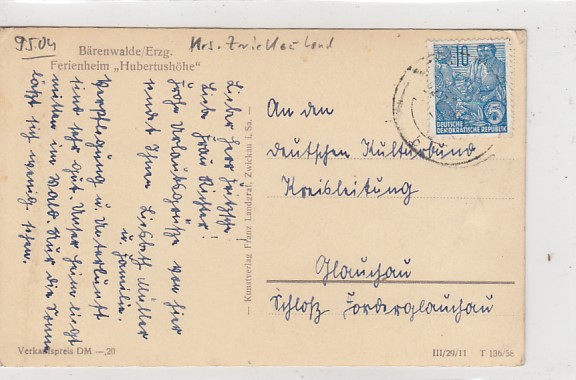 9504
Krs. Zwickau Land
Bärenwalde/Erzg.
Ferienheim „Hubertushöhe"
Lieber Herr
Liebe Frau Richter!
Frohe Urlaubsgrüße von hier
sendet Ihnen Liesbeth Müller
u. Familie.
Verpflegung u. Unterkunft
sind sehr gut. Unser Heim liegt
mitten im Wald. Nur die Sonne
läßt sich wenig sehen.
— Kunstverlag Franz Landgraf, Zwickau i. Sa. —
10
5
DEUTSCHE
DEMOKRATISCHE REPUBLIK
An den
deutschen Kulturbund
Kreisleitung
Glauchau
Schloß Forderglauchau
Verkaufspreis DM —,20
III/29/11 T 136/56